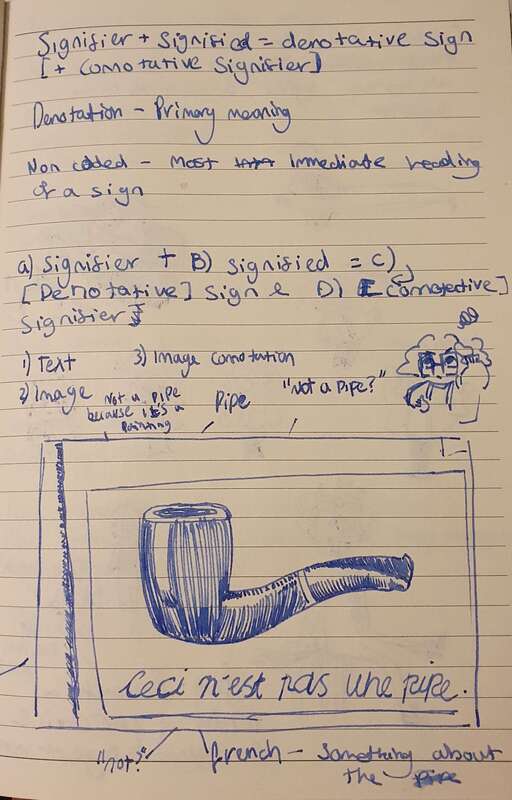 Signifier + Signified = denotative sign
[+ Comotative Signifier]
Denotation - Primary meaning
Non coded - Most immediate reading
of a sign
a) Signifier + B) Signified = C)
[Denotative] sign & D) [Comotective]
Signifier
1) Text 3) Image comotation
2) Image Not a pipe Pipe "Not a Pipe?"
because it's a
Painting
Ceci n'est pas une pipe.
"not?" french - Something about
the pipe